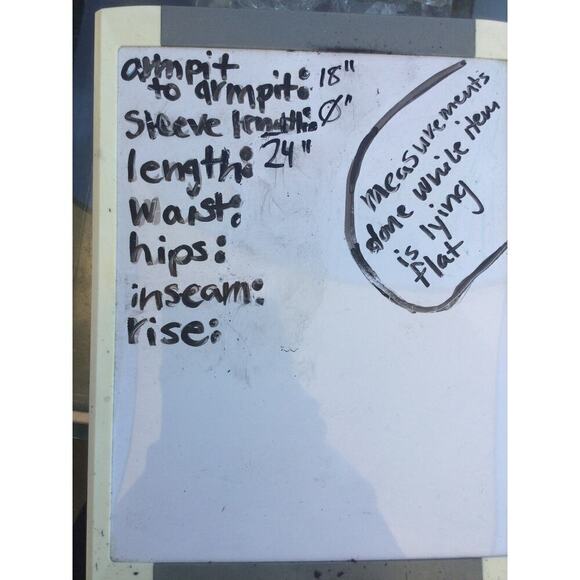 armpit
to armpit: 18"
sleeve length: Ø"
length: 24"
waist:
hips:
inseam:
rise:
measurements
done while item
is lying
flat